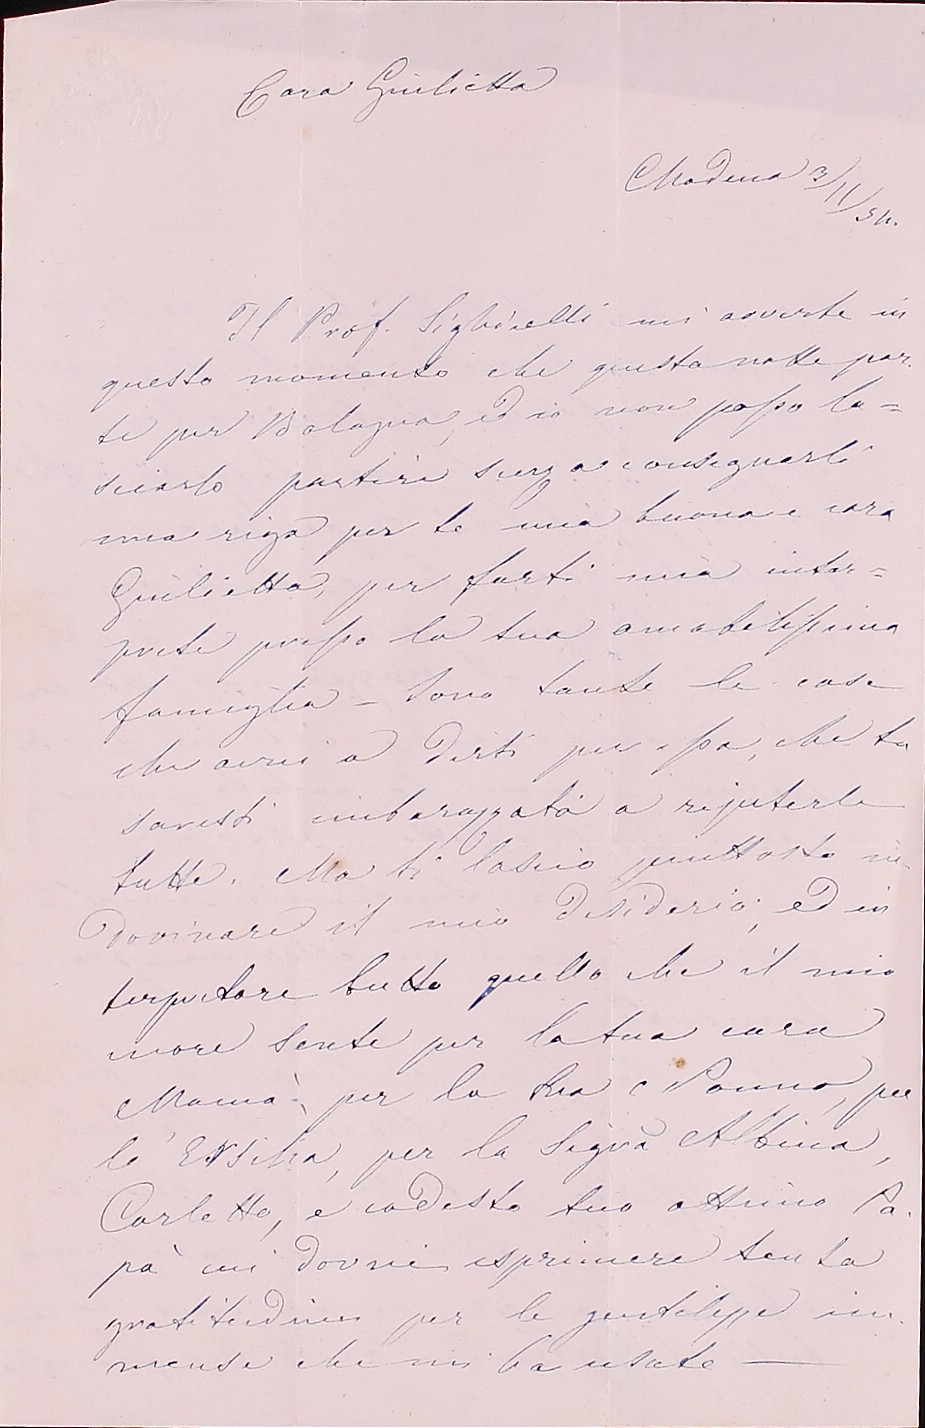 Cara Giulietta
Modena 3/11/54.
Il Prof. Sighicelli mi avverte in
questo momento che questa notte par-
te per Bologna, ed io non posso la=
sciarlo partire senza consegnarli
una riga per te mia buona e cara
Giulietta, per farti mia inter=
prete presso la tua amabilissima
famiglia – Sono tante le cose
che avrei a dirti per essa, che tu
saresti imbarazzata a ripeterle
tutte. Ma ti lascio piuttosto in-
dovinare il mio desiderio, ed in
terpretare tutto quello che il mio
core sente per la tua cara
Mamà, per la e Nonno, per
l' Ersilia, per la Sigra Albina,
Carletto, e codesto tuo ottimo Pa-
pà cui dovrei esprimere tanta
gratitudine per le gentilezze im-
mense che mi ha usate —